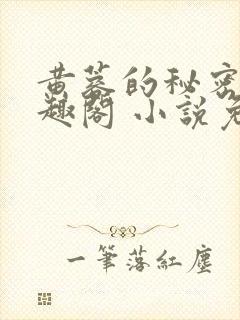 黄墓的秘密
趣阁 小說免
一筆落紅塵